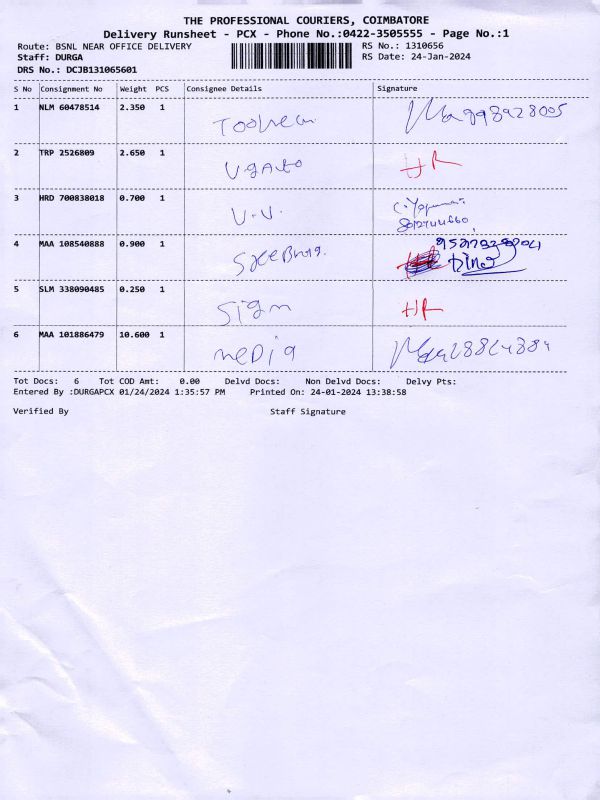 THE PROFESSIONAL COURIERS, COIMBATORE
Delivery Runsheet - PCX - Phone No.:0422-3505555 - Page No.:1
Route: BSNL NEAR OFFICE DELIVERY RS No.: 1310656
Staff: DURGA RS Date: 24-Jan-2024
DRS No.: DCJB131065601
S No Consignment No Weight PCS Consignee Details Signature
1 NLM 60478514 2.350 1
2 TRP 2526809 2.650 1 HR
3 HRD 700838018 0.700 1 V.V.
4 MAA 108540888 0.900 1
5 SLM 338090485 0.250 1 Sign HR
6 MAA 101886479 10.600 1 meDia
Tot Docs: 6 Tot COD Amt: 0.00 Delvd Docs: Non Delvd Docs: Delvy Pts:
Entered By :DURGAPCX 01/24/2024 1:35:57 PM Printed On: 24-01-2024 13:38:58
Verified By Staff Signature